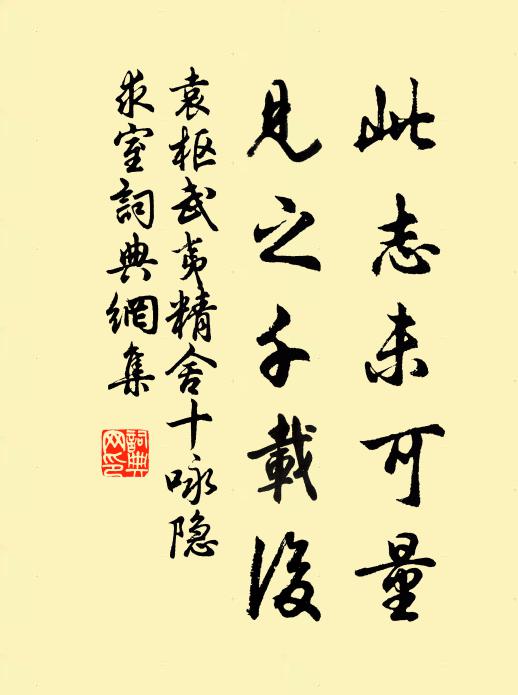 此志未可量
见之千載後
袁枢武夷精舍十咏隐
求室詞典網集
詞典
网印